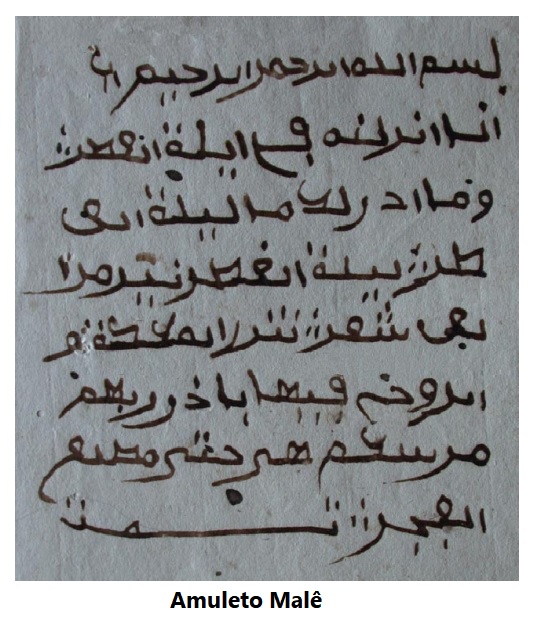 بسم الله الرحمن الرحيم
انا انزلنه في ليلة القدر
وما ادريك ما ليلة
ليلة القدر خير من
شهر تنزل الملئكة و
الروح فيها باذن ربهم
من سلم هي حتى مطلع
الفجر تمت
Amuleto Malê